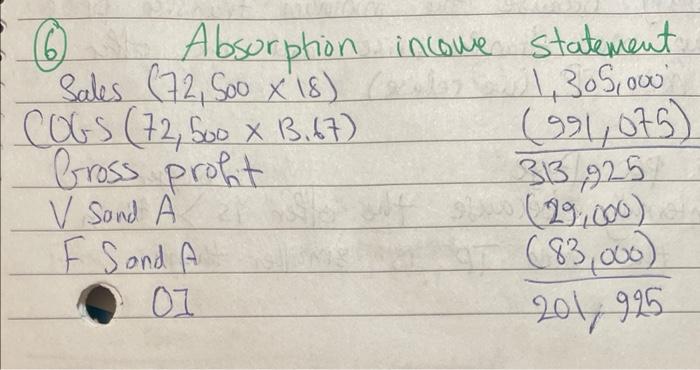 6 Absorption income statement
Sales (72,500 x 18) 1,305,000
COGS (72,500 x 13.67) (991,075)
Gross profit 313,925
V S and A (29,000)
F S and A (83,000)
OI 201,925